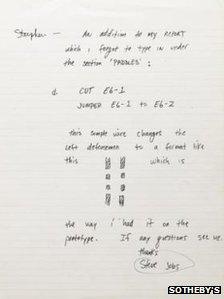 Stephen — An addition to my REPORT
which I forgot to type in under
the section 'PADDLES' :
d. CUT E6-1
JUMPER E6-1 to E6-2
this simple wire changes the
left defensemen to a format like
this which is
the way I had it on the
prototype. If any questions see me.
thanks
Steve Jobs
SOTHEBY'S